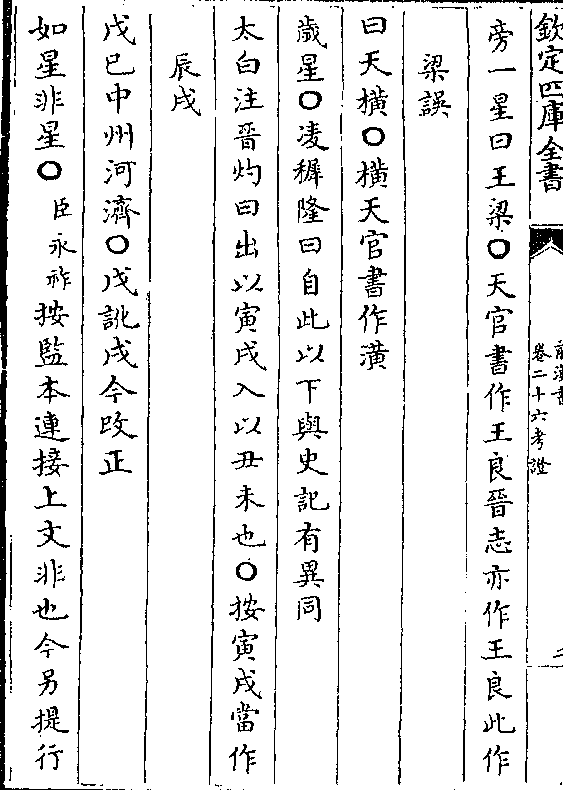 欽定四庫全書
前漢書
卷二十六考證
旁一星曰王梁○天官書作王良晉志亦作王良此作
梁誤
曰天橫○橫天官書作潢
歲星○凌穉隆曰自此以下與史記有異同
太白注晉灼曰出以寅戌入以丑未也○按寅戌當作
辰戌
戊巳中州河濟○戊訛戌今改正
如星非星○臣永祚按監本連接上文非也今另提行